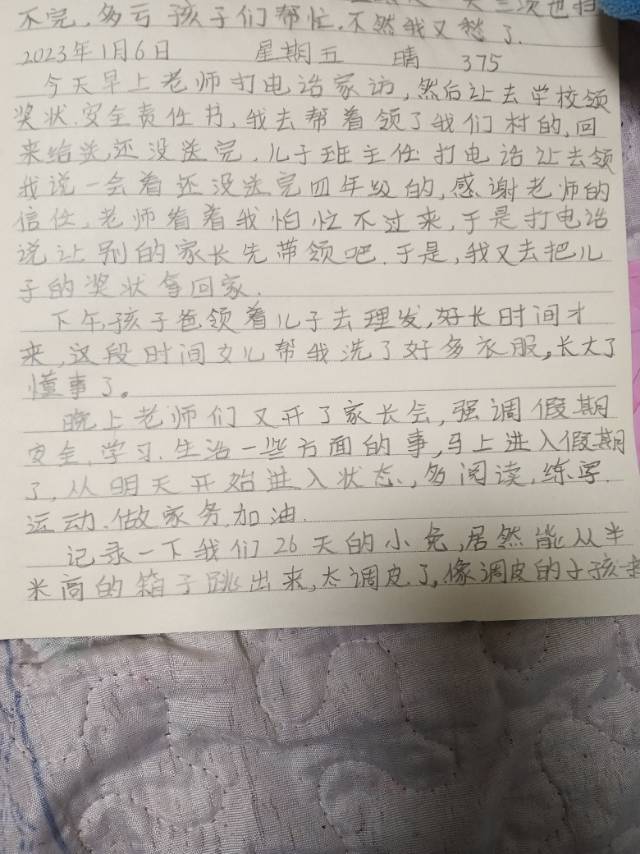 不完,多亏孩子们帮忙.不然我又愁了.
2023年1月6日 星期五 晴 375
今天早上老师打电话家访,然后让去学校领
奖状.安全责任书,我去帮着领了我们村的,回
来给送,还没送完.儿子班主任打电话让去领
我说一会着还没送完四年级的,感谢老师的
信任,老师看着我怕忙不过来,于是打电话
说让别的家长先带领吧.于是,我又去把儿
子的奖状拿回家.
下午,孩子爸领着儿子去理发,好长时间才
来,这段时间女儿帮我洗了好多衣服,长大了
懂事了。
晚上老师们又开了家长会,强调假期
安全.学习.生活一些方面的事,马上进入假期
了,从明天开始进入状态,多阅读,练字.
运动.做家务,加油.
记录一下我们26天的小兔,居然能从半
米高的箱子跳出来,太调皮了,像调皮的小孩